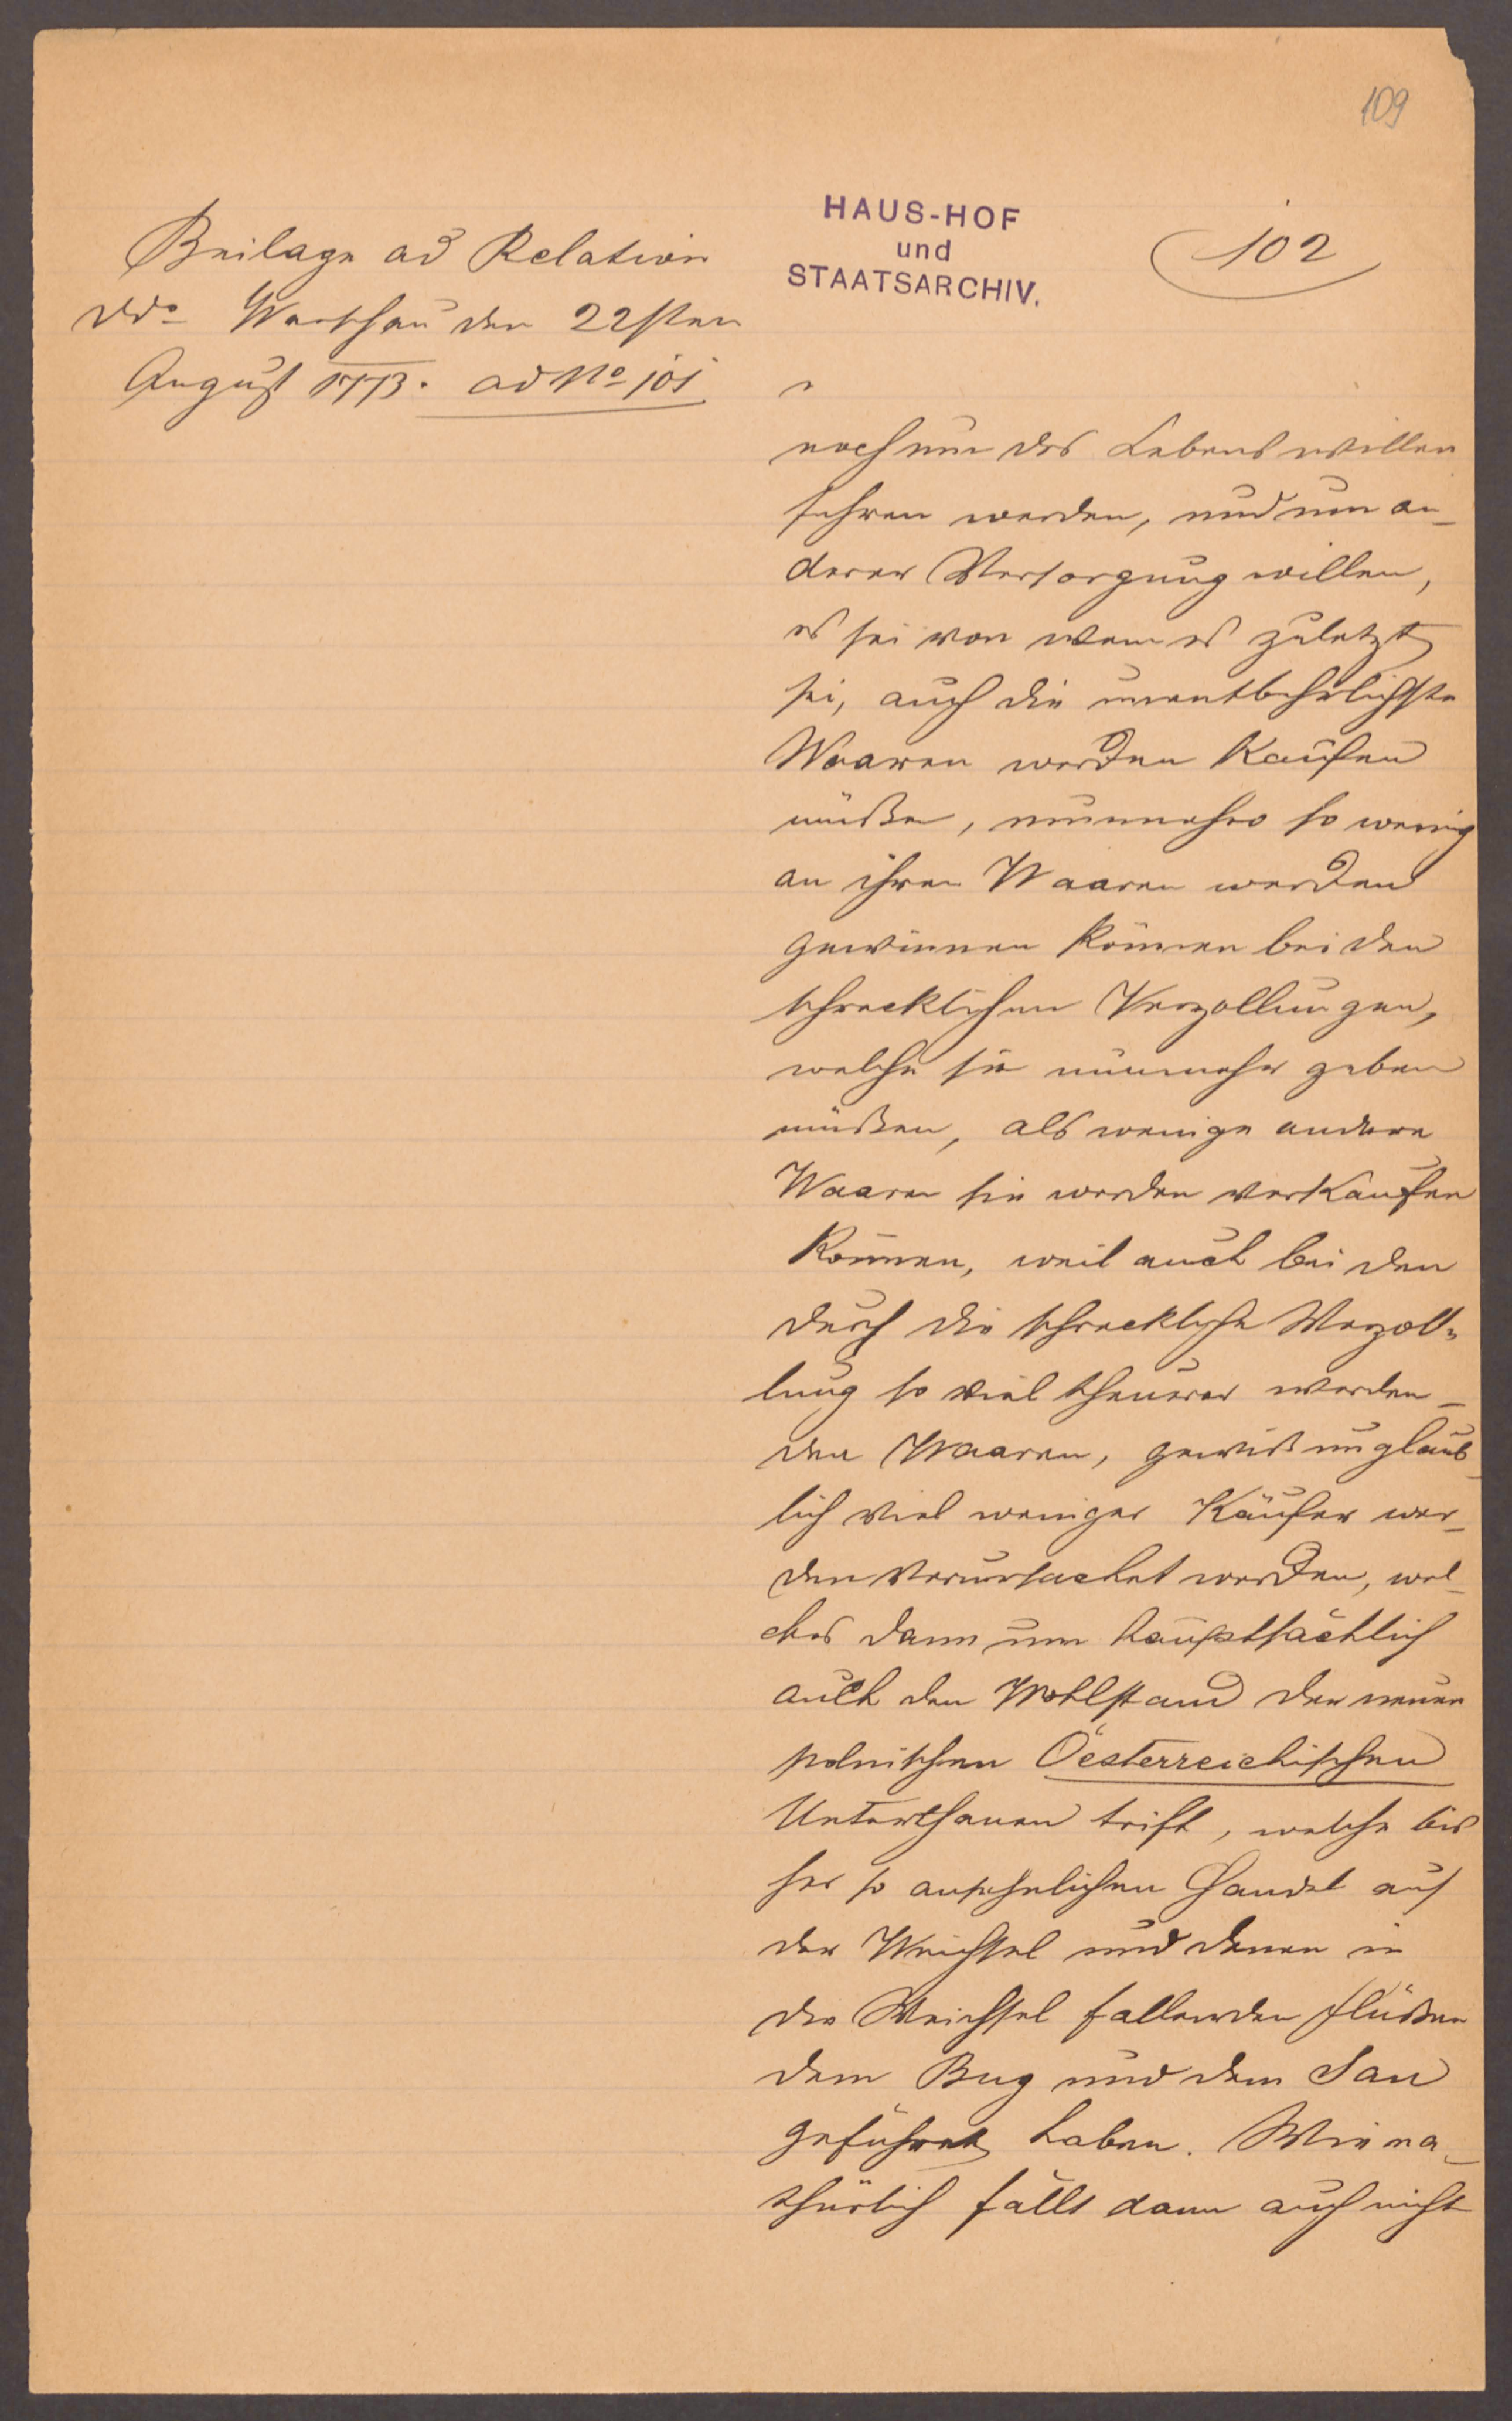 109
Beilage ad Relation
ddo Warschau den 22sten
August 1773. ad No 101
HAUS-HOF
und
STAATSARCHIV.
102
noch um des Lebens willen
führen werden, und um an-
derer Versorgung willen,
es sei von wem es zuletzt
sei, auch die unentbehrlichste
Waaren werden kaufen
müßen, nunmehro so wenig
an ihren Waaren werden
gewinnen können bei den
schrecklichen Verzollungen,
welche sie nunmehr geben
müßen, als wenige andere
Waaren sie werden verkaufen
können, weil auch bei den
durch die schreckliche Verzoll-
lung so viel theuerer werden-
den Waaren, gewiß unglaub-
lich viel weniger Käufer wer-
den verursachet werden, wel-
ches dann nun hauptsächlich
auch den Wohlstand der neuen
polnischen Oesterreichischen
Unterthanen trift, welche bis
her so ansehnlichen Handel auf
der Weichsel und denen in
die Weichsel fallenden Flüßen
dem Bug und dem San
geführet haben. Wie na-
thürlich fällt dann auch nicht